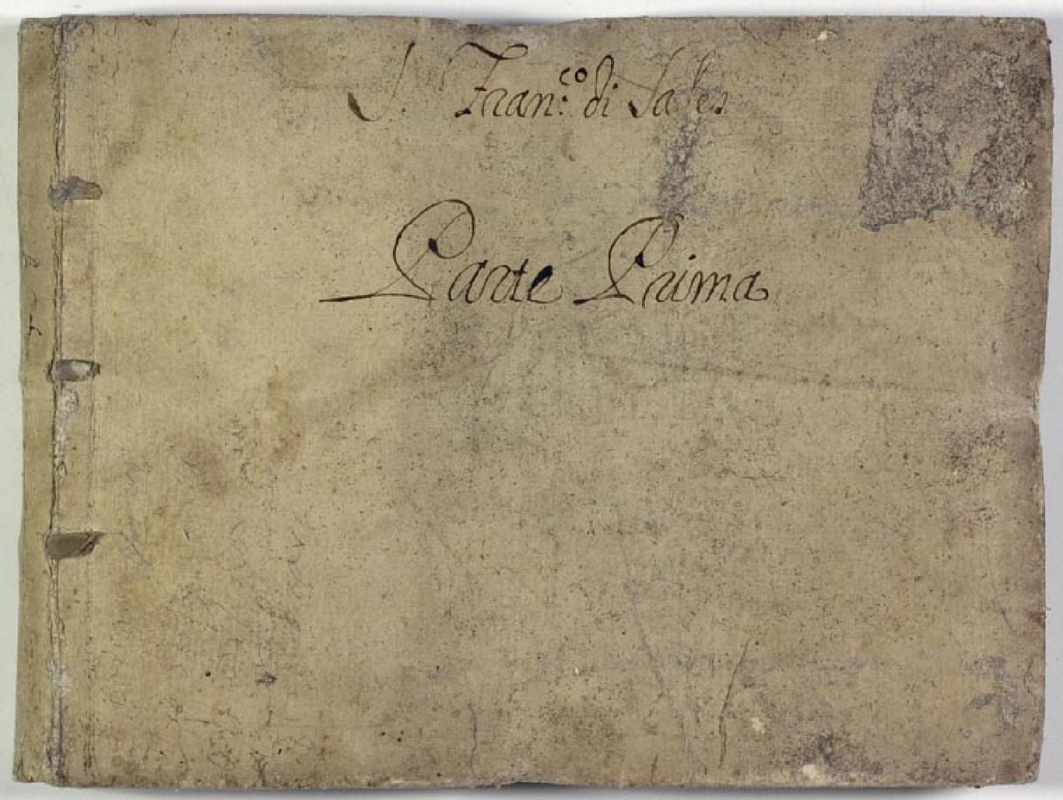 S. Fran:co di Sales
Parte Prima